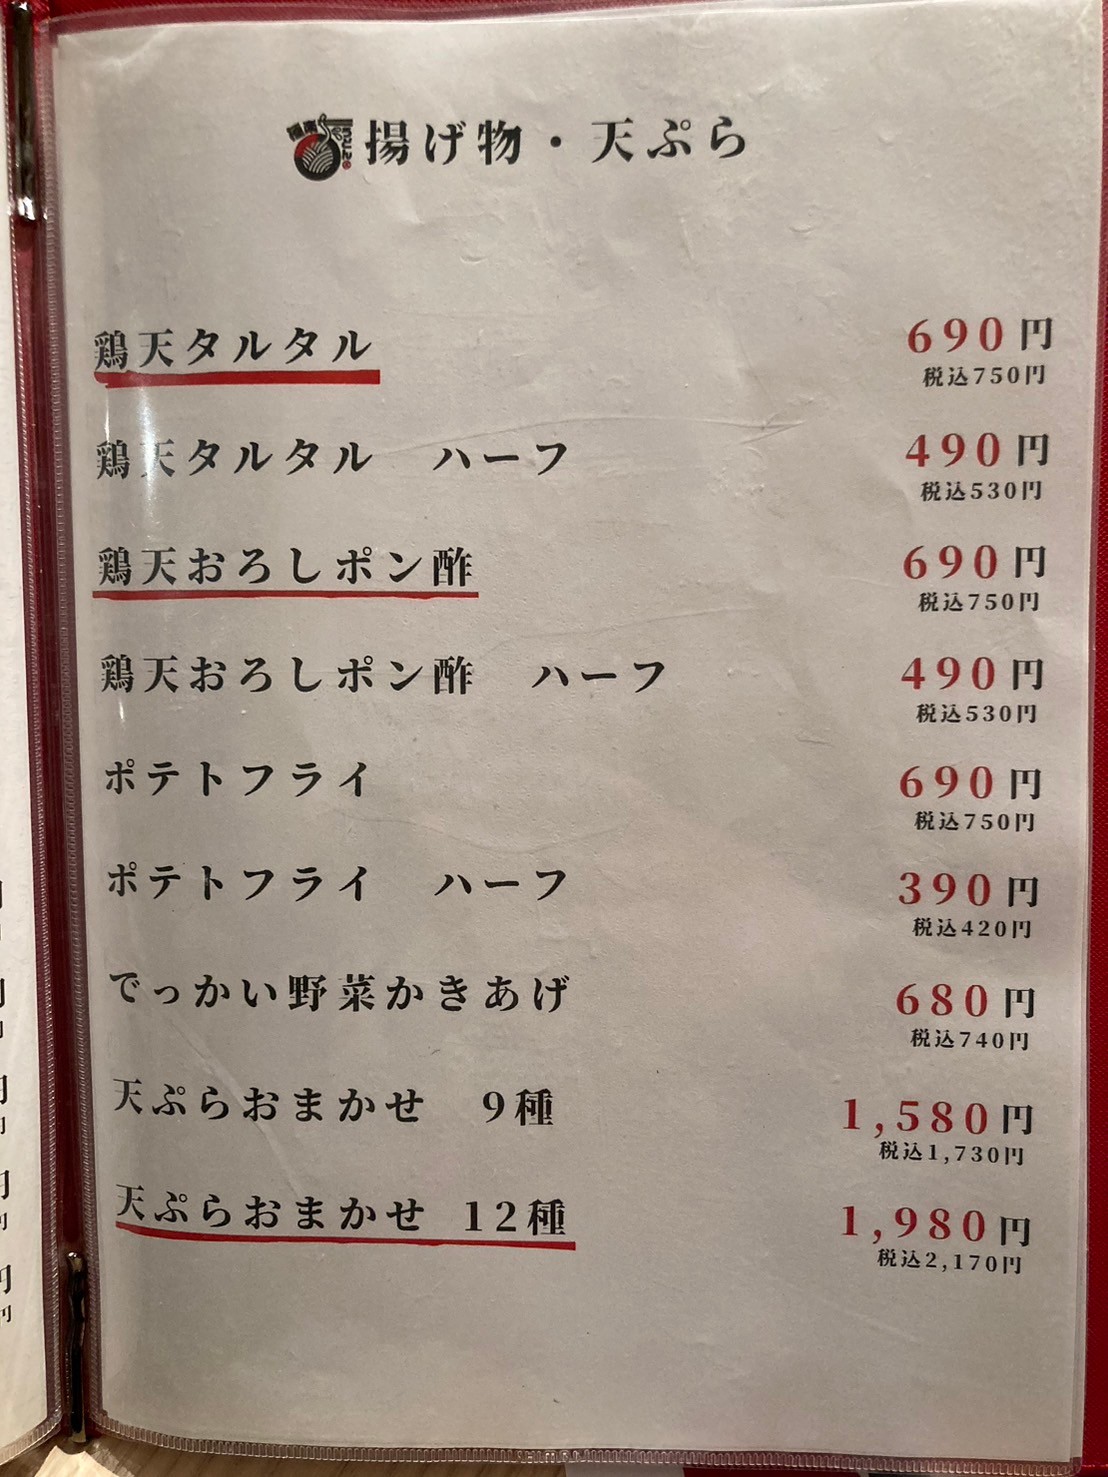 揚げ物・天ぷら
鶏天タルタル 690円
税込750円
鶏天タルタル ハーフ 490円
税込530円
鶏天おろしポン酢 690円
税込750円
鶏天おろしポン酢 ハーフ 490円
税込530円
ポテトフライ 690円
税込750円
ポテトフライ ハーフ 390円
税込420円
でっかい野菜かきあげ 680円
税込740円
天ぷらおまかせ 9種 1,580円
税込1,730円
天ぷらおまかせ 12種 1,980円
税込2,170円